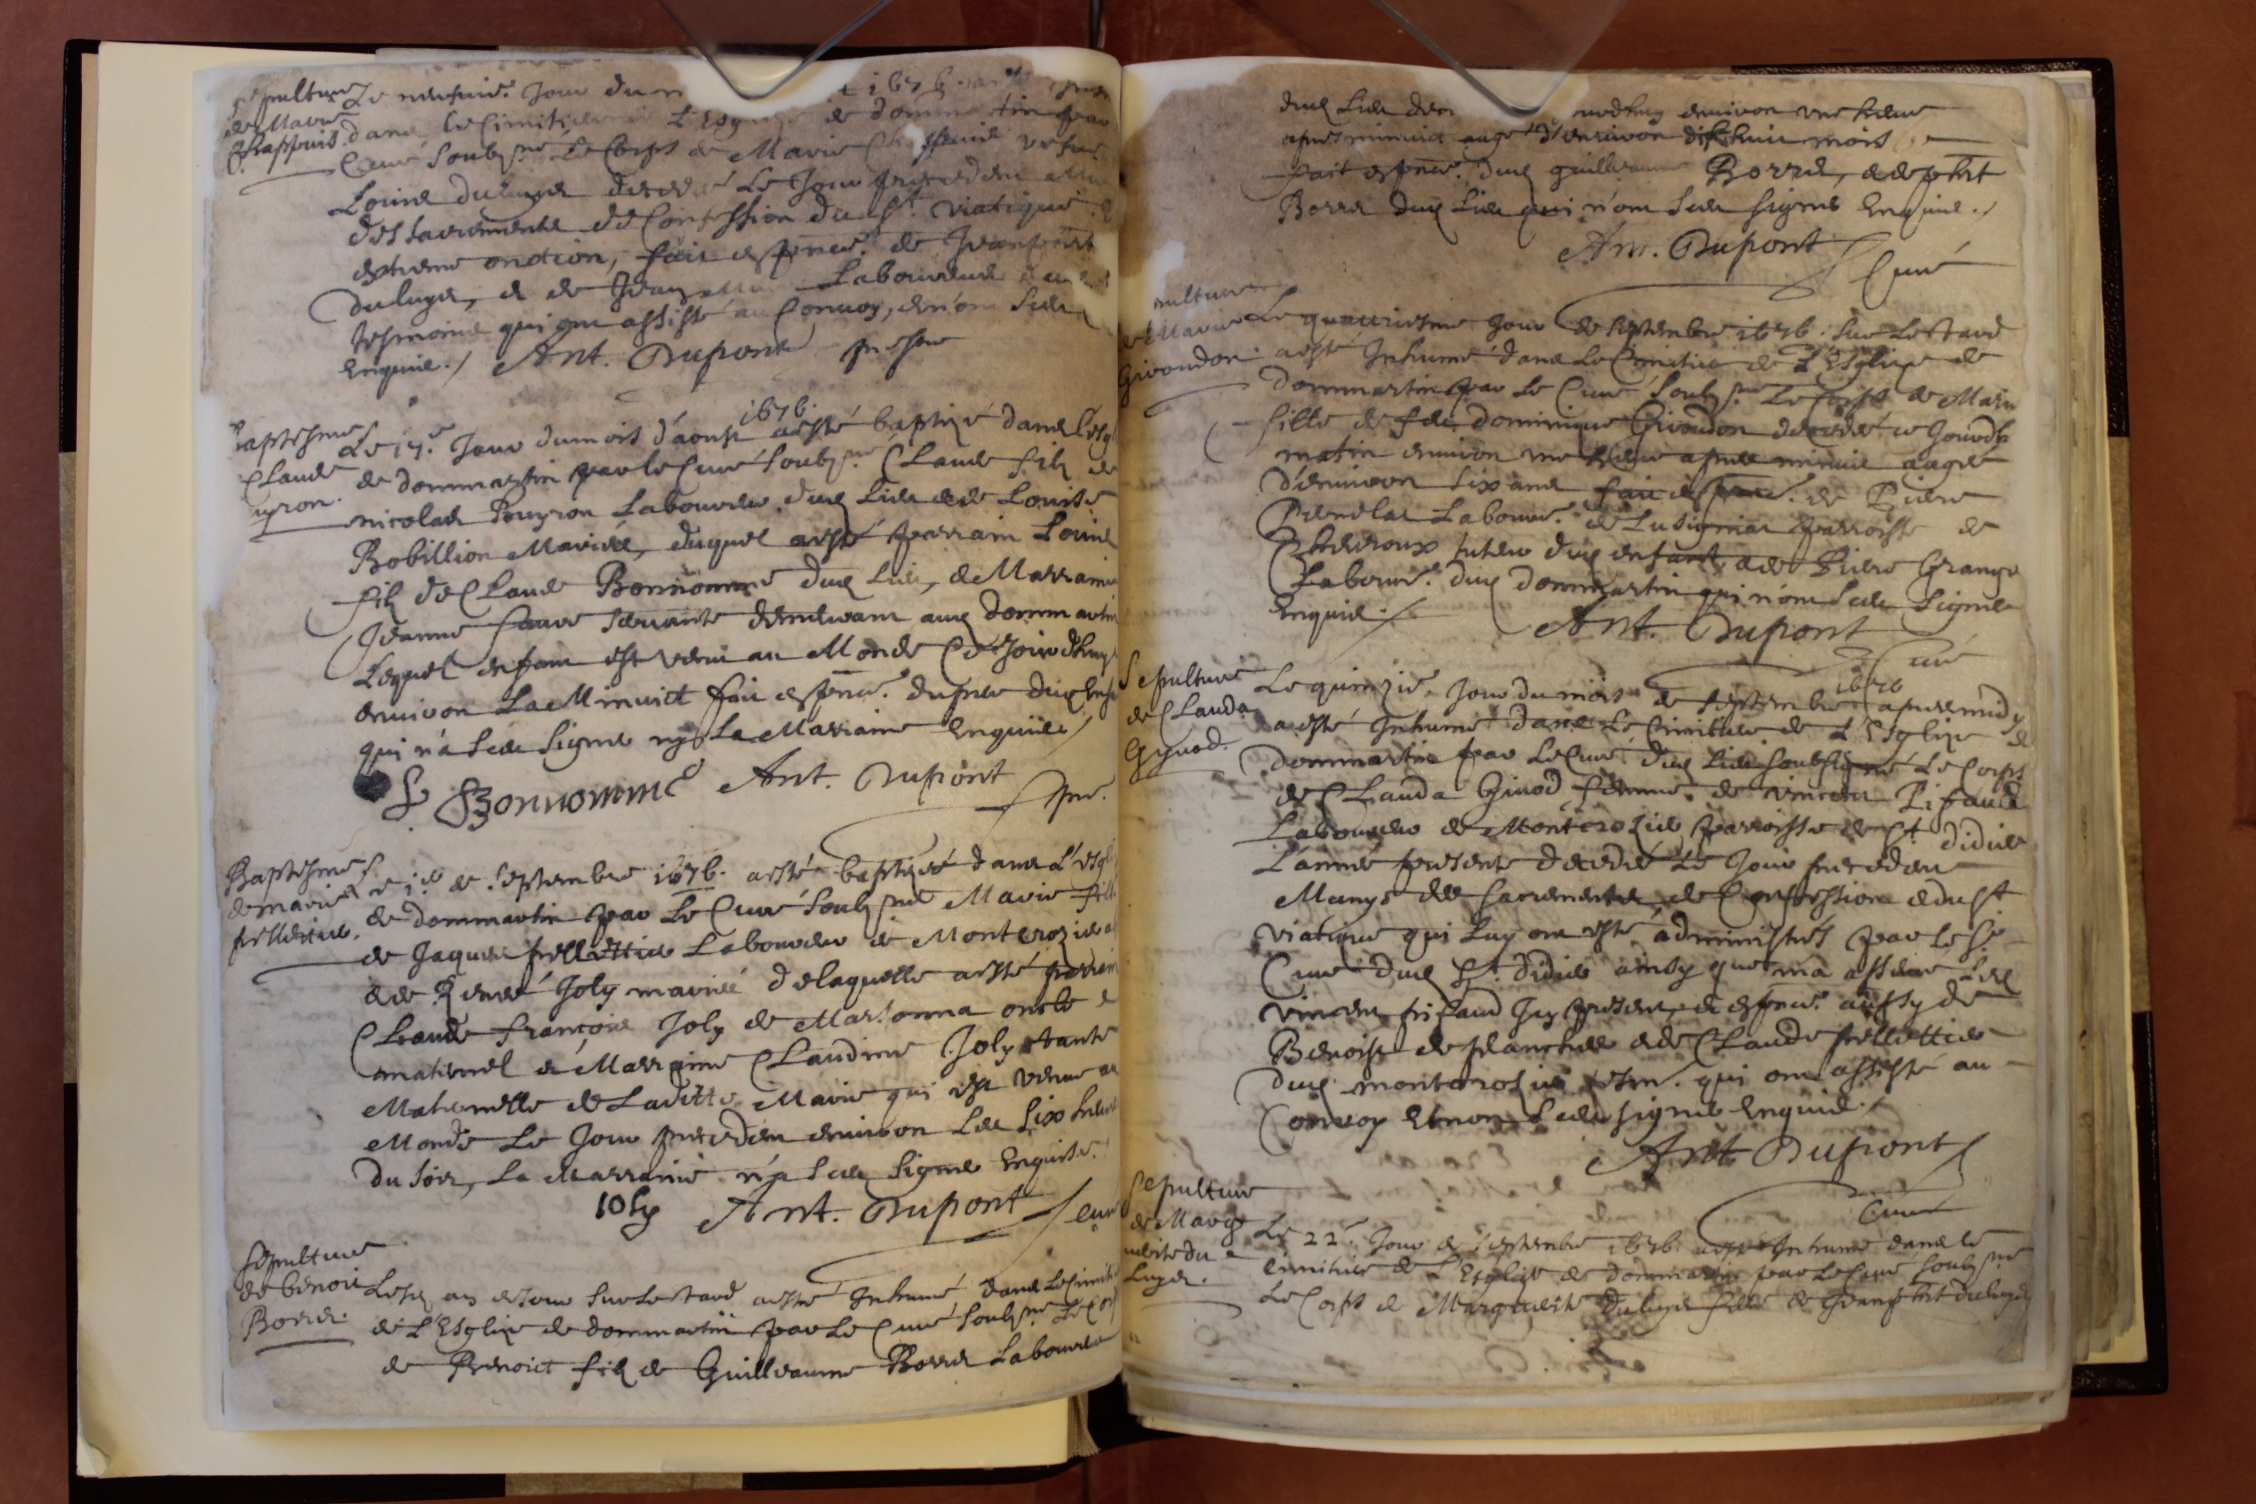 Sepulture
de Marie
Chappuis.
Le neufvie. Jour du m 1676.
dans le Cimitiere de L'Esglize de dommartin par
Curé soubsné Le Corps de Marie
Louis duluyer decedée Le Jour precedent
des sacrements de Confession du st. viatique &
extreme onction, fait es pnce. de
duluyer, & de Jean Laboureurs
tesmoins qui ont assisté au Convoy, & n'ont sceu
Enquis./ Ant. Dupont
Baptesme
Claude
uyron.
Le 17.e Jour du mois d'aoust 1676. a esté baptizé dans l'esgl
de dommartin par le Curé soubsné Claude filz de
nicolas Pouyron Laboureur dud. Lieu & de Louise
Robillion Mariés, duquel a esté parrain Louis
filz de Claude Bonnomme dud. Lieu, & Marraine
Jeanne servante demeurant aud. dommartin
Lequel enfant est venu au Monde Ce Jourdhuy
environ La Minuict fait es pnce. du pere dud. enf
qui n'a sceu signer ny La Marraine Enquis /
L Bonnomme Ant. Dupont
Baptesme
de marie
pelletier.
Le 1.er de septembre 1676. a esté baptizée dans L'esgl
de dommartin par Le Curé soubsné Marie fille
de Jaques pelletier Laboureur de Monterozier
& de René Joly mariés de laquelle a esté parrain
Claude françois Joly de Marsonna oncle
maternel & Marraine Claudine Joly tante
Maternelle de Laditte Marie qui est venue au
Monde Le Jour precedent environ Les six heures
du soir, La Marraine n'a sceu signer Enquise.
Ioly Ant. Dupont Curé
Sepulture
de benoit
Borrer.
Lesd. an & Jour sur Le tard a esté Inhumé dans Le Cimiti
de L'Esglize de dommartin par Le Curé soubsné Le Corps
de Benoict filz de Guilleaume Borrer Laboureur
dud. Lieu environ une heure
apres minuict aagé d'environ dix huit mois
fait es pnce. dud. guilleaume Borrer, & de phbt
Borrer dud. Lieu qui n'ont sceu signer Enquis./
Ant. Dupont
Curé
Sepulture
de Marie
Givoudon.
Le quatriesme Jour de septembre 1676. sur Le tard
a esté Inhumé dans Le Cimitiere de L'Esglize de
dommartin par Le Curé soubsné Le Corps de Marie
fille de feu dominique Givoudon decedée ce Jourdh
matin environ une heure apres minuit aagée
d'environ six ans fait es pnce. de Piere
Labour. de Lusignia parroisse de
tuteur dud. enfant & de Piere Grange
Labour. dud. dommartin qui n'ont sceu signer
Enquis./
Ant. Dupont
Curé
Sepulture
de Clauda
Gynod.
Le quinzie. Jour du mois de septembre 1676 apres midy
a esté Inhumé dans Le Cimitiere de L'Esglize de
dommartin par Le Curé dud. Lieu soubsigné Le Corps
de Clauda Ginod femme de vincent Pifaud
Laboureur de Monterozier parroisse de St. didier
L'année presente decedée Le Jour precedent
Munys des sacrements de Confession & du st
viatique qui luy ont esté administrés par Le Sr.
Curé dud. St. didier ainsy que m'a assuré Led.
vincent pifaud Icy present, & es pnce. aussy de
Benoist de planches & de Claude pelletier
dud. monterozier tesm. qui ont assisté au
Convoy Et n'ont sceu signer Enquis./
Ant. Dupont
Curé
Sepulture
de Marg
uerite du
Luyer.
Le 22.e Jour de septembre 1676. a esté Inhumée dans le
Cimitiere de L'Esglize de dommartin par Le Curé soubsné
Le Corps de Marguerite duluyer fille de duluyer